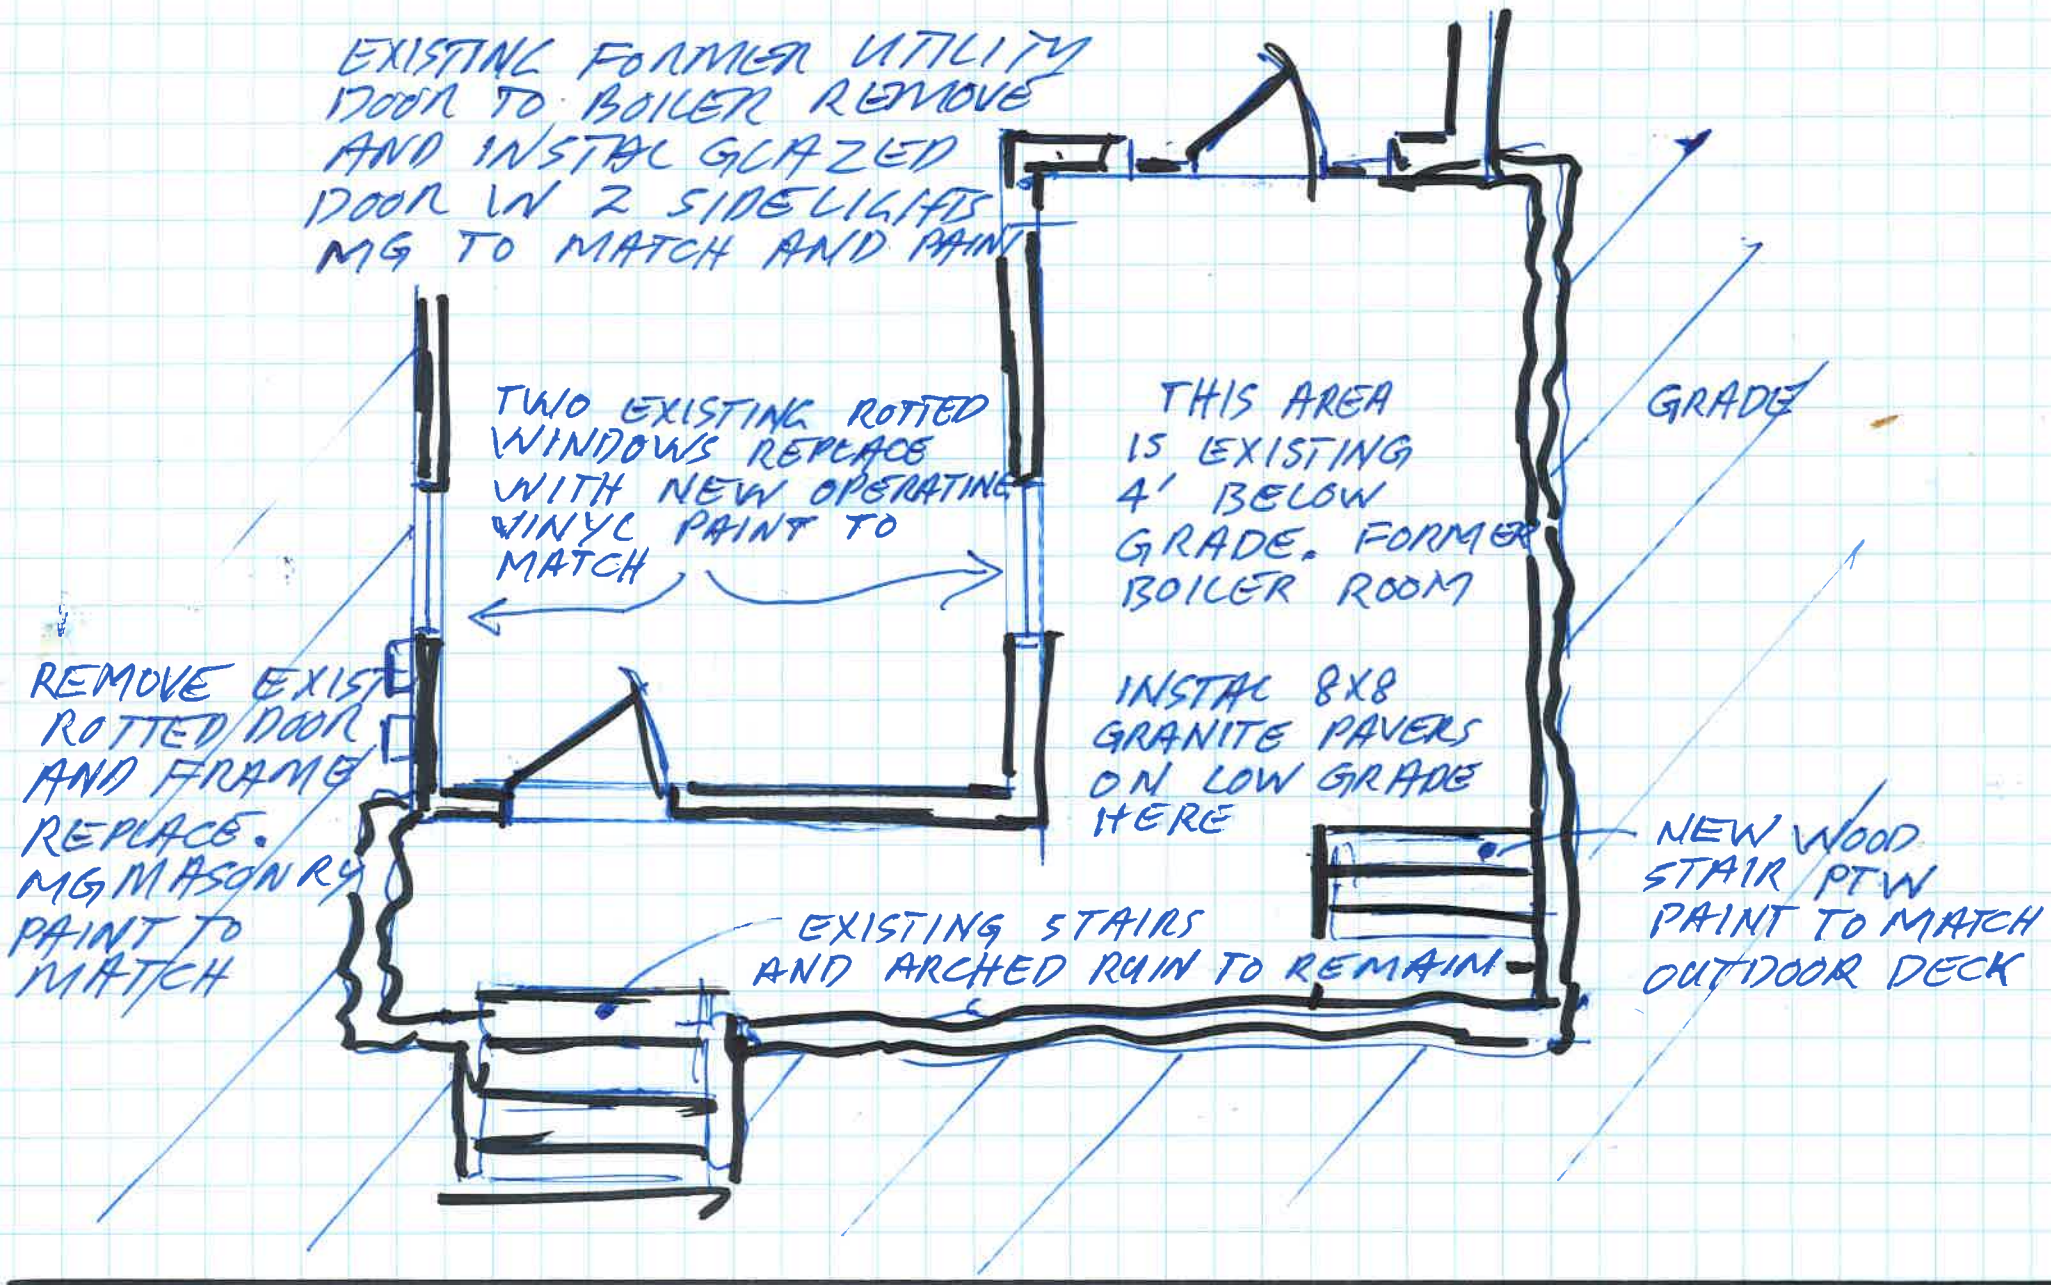 EXISTING FORMER UTILITY
DOOR TO BOILER REMOVE
AND INSTAL GLAZED
DOOR W 2 SIDELIGHTS
MG TO MATCH AND PAINT
TWO EXISTING ROTTED
WINDOWS REPLACE
WITH NEW OPERATING
VINYL PAINT TO
MATCH
THIS AREA
IS EXISTING
4' BELOW
GRADE. FORMER
BOILER ROOM
GRADE
REMOVE EXIST
ROTTED DOOR
AND FRAME
REPLACE.
MG MASONRY
PAINT TO
MATCH
INSTAL 8X8
GRANITE PAVERS
ON LOW GRADE
HERE
NEW WOOD
STAIR PTW
PAINT TO MATCH
OUTDOOR DECK
EXISTING STAIRS
AND ARCHED RUIN TO REMAIN